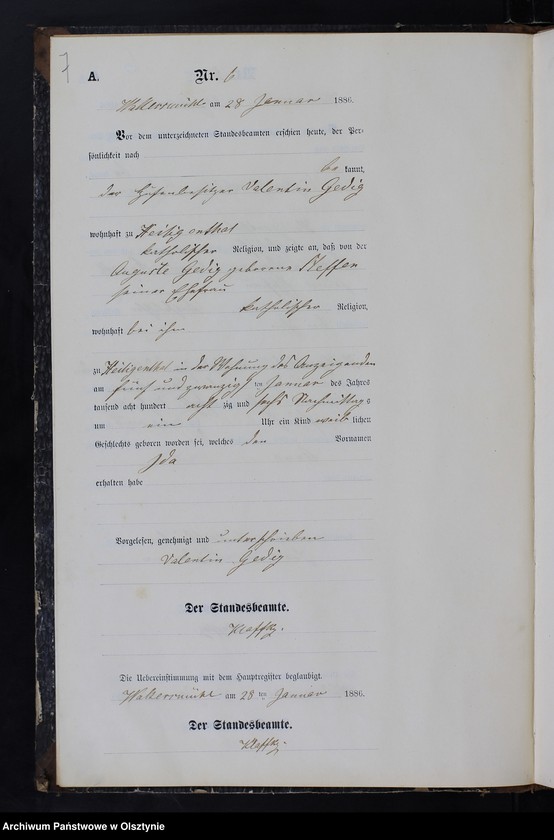 7
A. Nr. 6
Walkersmühle am 28 Januar 1886.
Vor dem unterzeichneten Standesbeamten erschien heute, der Per-
sönlichkeit nach
be kannt,
der Hufenbesitzer Valentin Gedig
wohnhaft zu Heiligenthal
katholischer Religion, und zeigte an, daß von der
Auguste Gedig geborene Steffen
seiner Ehefrau
katholischer Religion,
wohnhaft bei ihm
zu Heiligenthal in der Wohnung des Anzeigenden
am fünf und zwanzigsten Januar des Jahres
tausend acht hundert acht zig und sechs Nachmittags
um ein Uhr ein Kind weib lichen
Geschlechts geboren worden sei, welches den Vornamen
Ida
erhalten habe
Vorgelesen, genehmigt und unterschrieben
Valentin Gedig
Der Standesbeamte.
Die Uebereinstimmung mit dem Hauptregister beglaubigt.
Walkersmühle am 28 ten Januar 1886.
Der Standesbeamte.
Archiwum Państwowe w Olsztynie